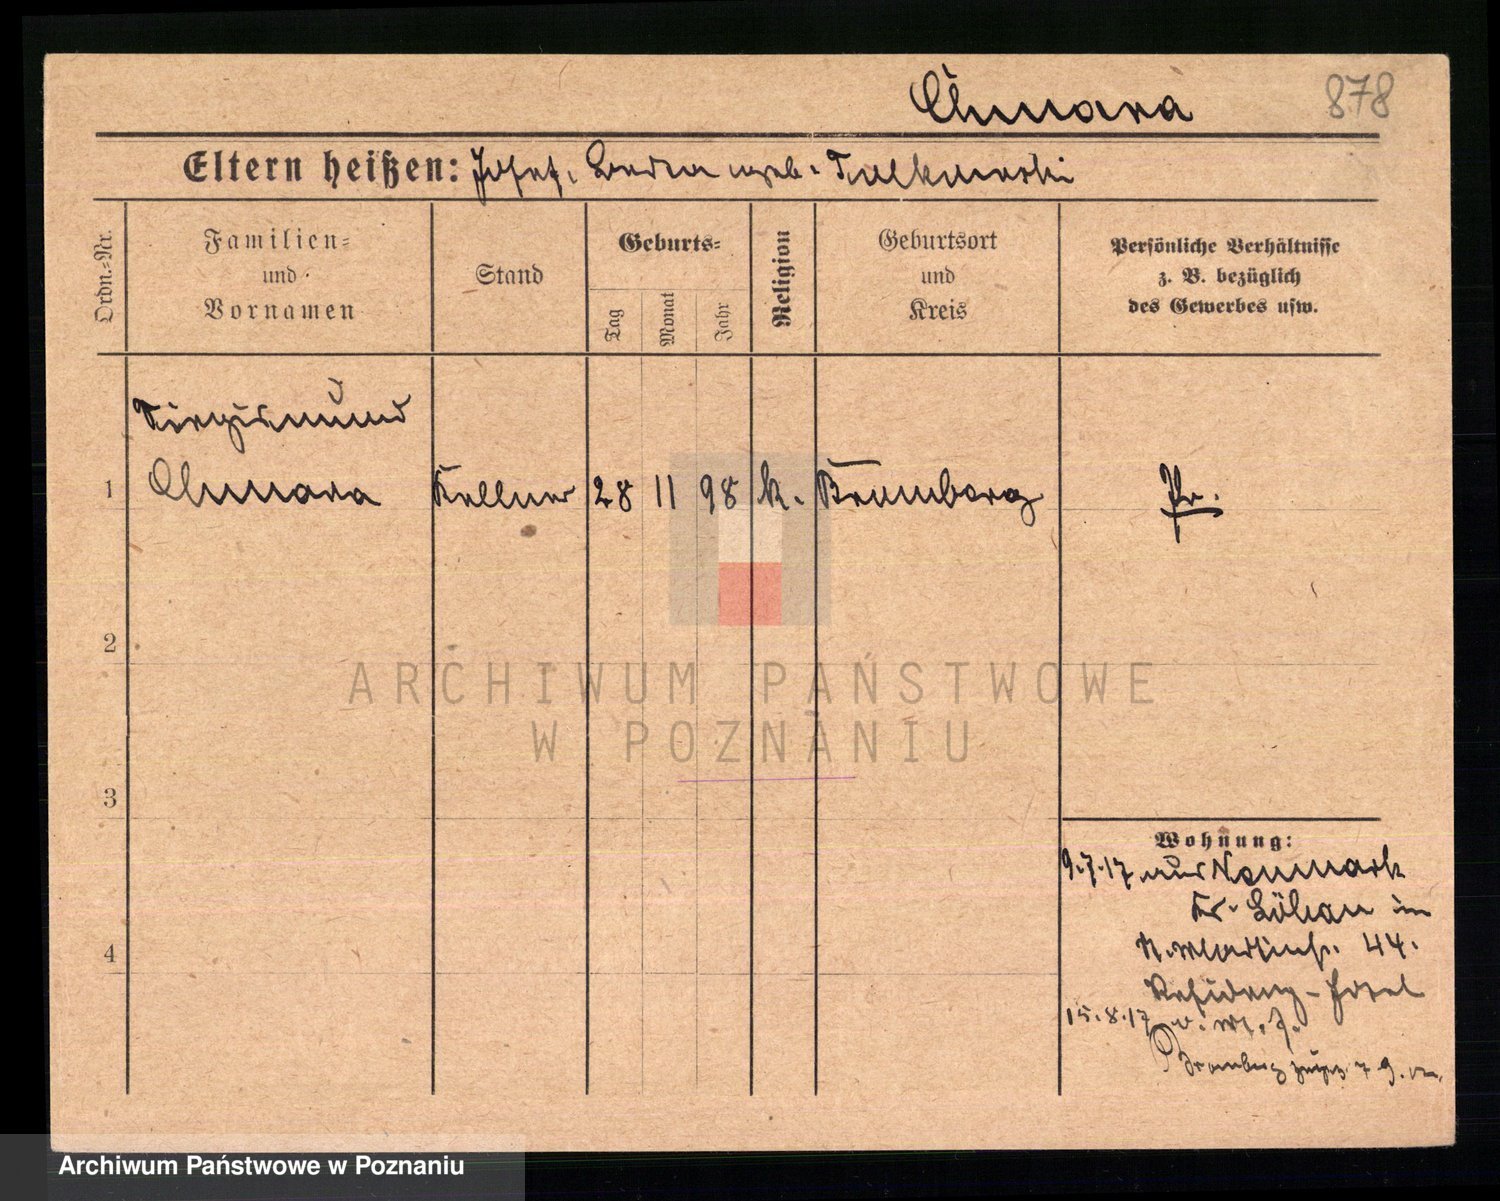 Chmara 878
Eltern heißen: Josef, geb.
Ordn.-Nr.
Familien-
und
Vornamen
Stand
Geburts-
Tag
Monat
Jahr
Religion
Geburtsort
und
Kreis
Persönliche Verhältnisse
z. B. bezüglich
des Gewerbes usw.
Siegismund
1 Chmara Kellner 28 11 98 k. Bromberg Pr.
2
3
4
Wohnung:
9.7.17 aus Neumark
Kr. Löbau in
St. Martinstr. 44.
Residenz-Hotel
15.8.17 v.
Bromberg
ARCHIWUM PAŃSTWOWE
W POZNANIU
Archiwum Państwowe w Poznaniu